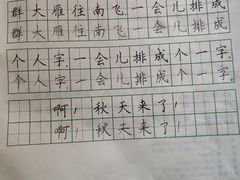 群大雁往南飞,一会儿排成
群大雁往南飞,一会儿排成
个人字,一会儿排成个一字.
个人字,一会儿排成个一字.
啊!秋天来了!
啊!秋天来了!